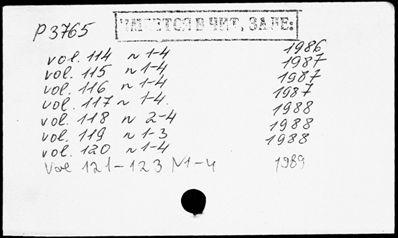 P3765
ИМЕЕТСЯ В ЧИТ. ЗАЛЕ:
vol. 114 n 1-4 1986
vol. 115 n 1-4 1987
vol. 116 n 1-4 1987
vol. 117 n 1-4. 1988
vol. 118 n 2-4 1988
vol. 119 n 1-3 1988
vol. 120 n 1-4
Vol 121-123 N1-4 1989